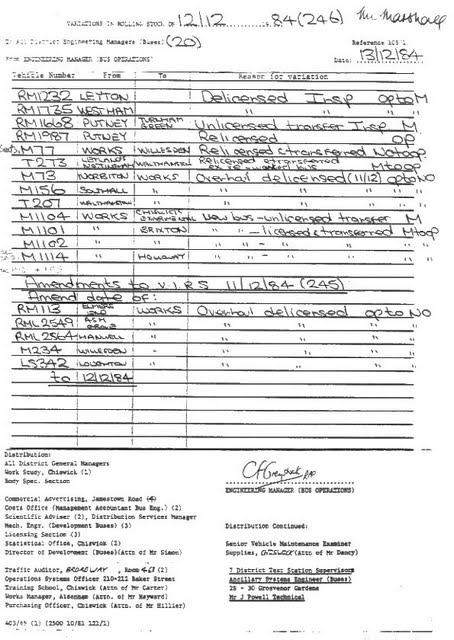 VARIATIONS IN ROLLING STOCK OF 12/12 84 (246) Mr Marshall
To All District Engineering Managers (Buses) (20)
Reference 105/1
From ENGINEERING MANAGER (BUS OPERATIONS) Date: 13/12/84
Vehicle Number From To Reason for variation
RM1232 LEYTON Delicensed Insp op to M
RM1735 WESTHAM " " "
RM1668 PUTNEY TURNHAM GREEN Unlicensed transfer Insp M
RM1987 PUTNEY Relicensed OP
M77 WORKS WILLESDEN Relicensed & transferred NO to op
T273 WALTHAMSTOW Relicensed & transferred M to op
M73 NORBITON WORKS Overhaul delicensed (11/12) op to NO
M156 SOUTHALL " " " "
T207 WALTHAMSTOW " " " "
M1104 WORKS CHISWICK EXPERIMENTAL New bus - unlicensed transfer M
M1101 " BRIXTON " " - licensed & transferred M to op
M1102 " " " " - " "
M1114 " HOLLOWAY " " - " "
Amendments to V.I.R.S 11/12/84 (245)
Amend date of:
RM113 ELMERS END WORKS Overhaul delicensed op to NO
RML2549 ASH GROVE " " " "
RML2564 HANWELL " " " "
M234 WILLESDEN " " " "
LS342 LOUGHTON " " " "
to 12/12/84
Distribution:
All District General Managers
Work Study, Chiswick (1)
Body Spec. Section
ENGINEERING MANAGER (BUS OPERATIONS)
Commercial Advertising, Jamestown Road (4)
Costs Office (Management Accountant Bus Eng.) (2)
Scientific Adviser (2), Distribution Services Manager
Mech. Engr. (Development Buses) (3)
Licensing Section (3)
Statistical Office, Chiswick (2)
Director of Development (Buses)(Attn of Mr Simon)
Distribution Continued:
Senior Vehicle Maintenance Examiner
Supplies, CHISWICK (Attn of Mr Dancy)
Traffic Auditor, BROADWAY, Room 463 (2)
Operations Systems Officer 210-211 Baker Street
Training School, Chiswick (Attn of Mr Carter)
Works Manager, Aldenham (Attn of Mr Hayward)
Purchasing Officer, Chiswick (Attn. of Mr Hillier)
7 District Test Station Supervisors
Ancillary Systems Engineer (Buses)
25 - 30 Grosvenor Gardens
Mr J Powell Technical
403/69 (1) (2500 10/81 122/1)